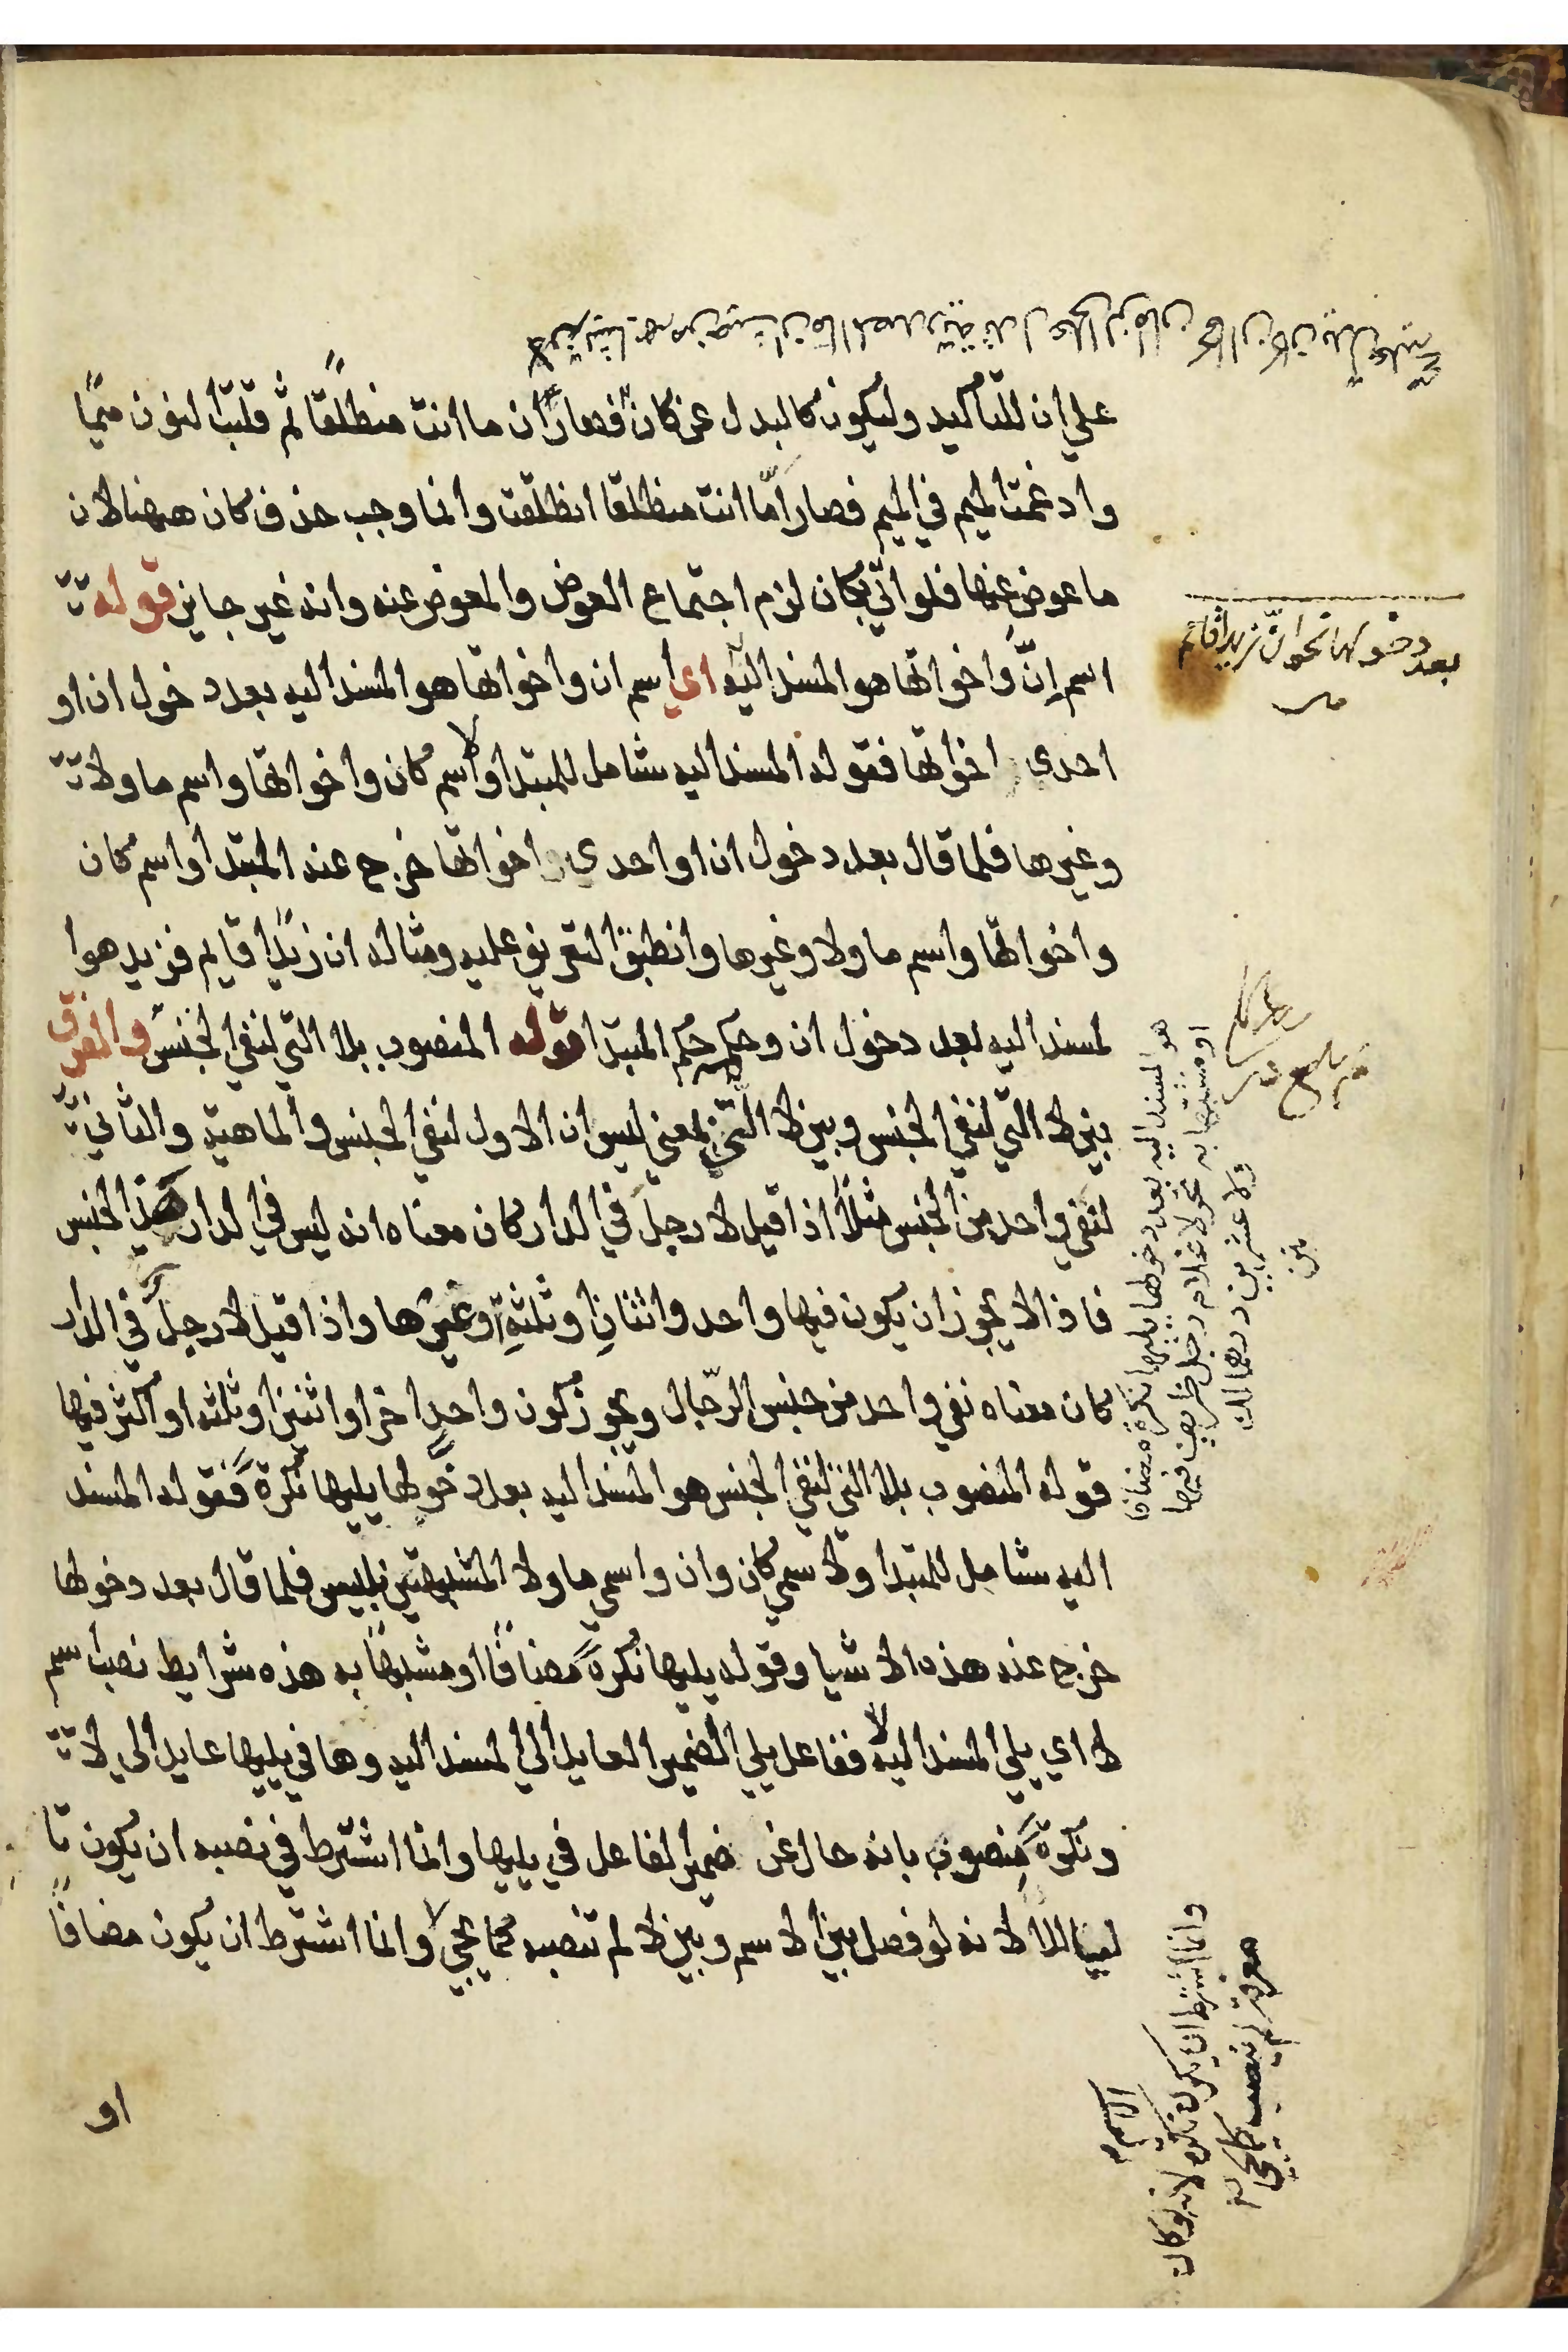 على ان للتأكيد وليكون كالبدل عن كان فصار ان ما انت منطلقا ثم قلبت النون ميمًا
وادغمت الميم في الميم فصار امّا انت منطلقا انطلقت وانما وجب حذف كان ههنا لان
ما عوض عنها فلو اتي بكان لزم اجتماع العوض والمعوض عنه وانه غير جايز قوله
اسم إنّ واخواتها هو المسند اليه اي اسم ان واخواتها هو المسند اليه بعد دخول ان او
احدى اخواتها فقوله المسند اليه شامل للمبتدا ولاسم كان واخواتها واسم ما ولا
وغيرها فلما قال بعد دخول ان او احدى اخواتها خرج عنه المبتدا واسم كان
واخواتها واسم ما ولا وغيرها وانطبق التعريف عليه ومثاله ان زيدًا قايم فزيد هوا
لمسند اليه بعد دخول ان وحكمه حكم المبتدا قوله المنصوب بلا التي لنفي الجنس والفرق
بين لا التي لنفي الجنس وبين لا التي بمعني ليس ان الاول لنفي الجنس والماهية والثاني
لنفي واحد من الجنس مثلاً اذا قيل لا رجلَ في الدار كان معناه انه ليس في الدار هذا الجنس
فاذا لا يجوز ان يكون فيها واحد واثنان وثلثة وغيرها واذا قيل لا رجلٌ في الدار
كان معناه نفي واحد من جنس الرّجال ويجوز كون واحد اخر او اثنين او ثلثه او اكثر فيها
قوله المنصوب بلا التي لنفي الجنس هو المسند اليه بعد دخولها يليها نكرةً فقوله المسند
اليه شامل للمبتدا ولاسمي كان وان واسمي ما ولا المشبهتين بليس فلما قال بعد دخولها
خرج عنه هذه الاشيا وقوله يليها نكرةً مضافًا او مشبهًا به هذه شرايط نصب اسم
لا اي يلي المسند اليه لا ففاعل يلي الضمير العايد الي المسند اليه وها في يليها عايد الي لا
ونكرةً منصوب بانه حال عن ضمير الفاعل في يليها وانما اشترط في نصبه ان يكون تا
ليا للا لانه لو فصل بين الاسم وبين لا لم تنصبه كما يجي وانما اشترط ان يكون مضافًا
او
بعد دخولها نحو انّ زيدًا قائم
هو المسند اليه بعد دخولها يليها نكرة مضافا
او مشبها به نحو لا غلام رجل ظريف فيها
ولا عشرين درهما لك
متن
وانما اشترط ان يكون نكرة لانه لو كان
معرفة لم ينصب كما يجي
الاسم